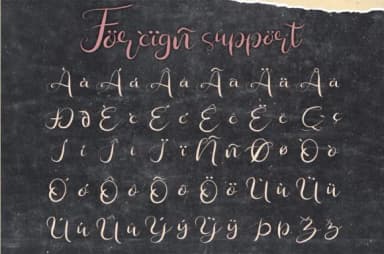 Förèïgñ suppört
À à Á á Â â Ã ã Ä ä Å å
Ð ð È è É é Ê ê Ë ë Ç ç
Ì ì Í í Ï ï Ñ ñ Ø ø Ò ò
Ó ó Ô ô Õ õ Ö ö Ù ù Ü ü
Ú ú Û û Ý ý Ÿ ÿ Þ þ Ž ž